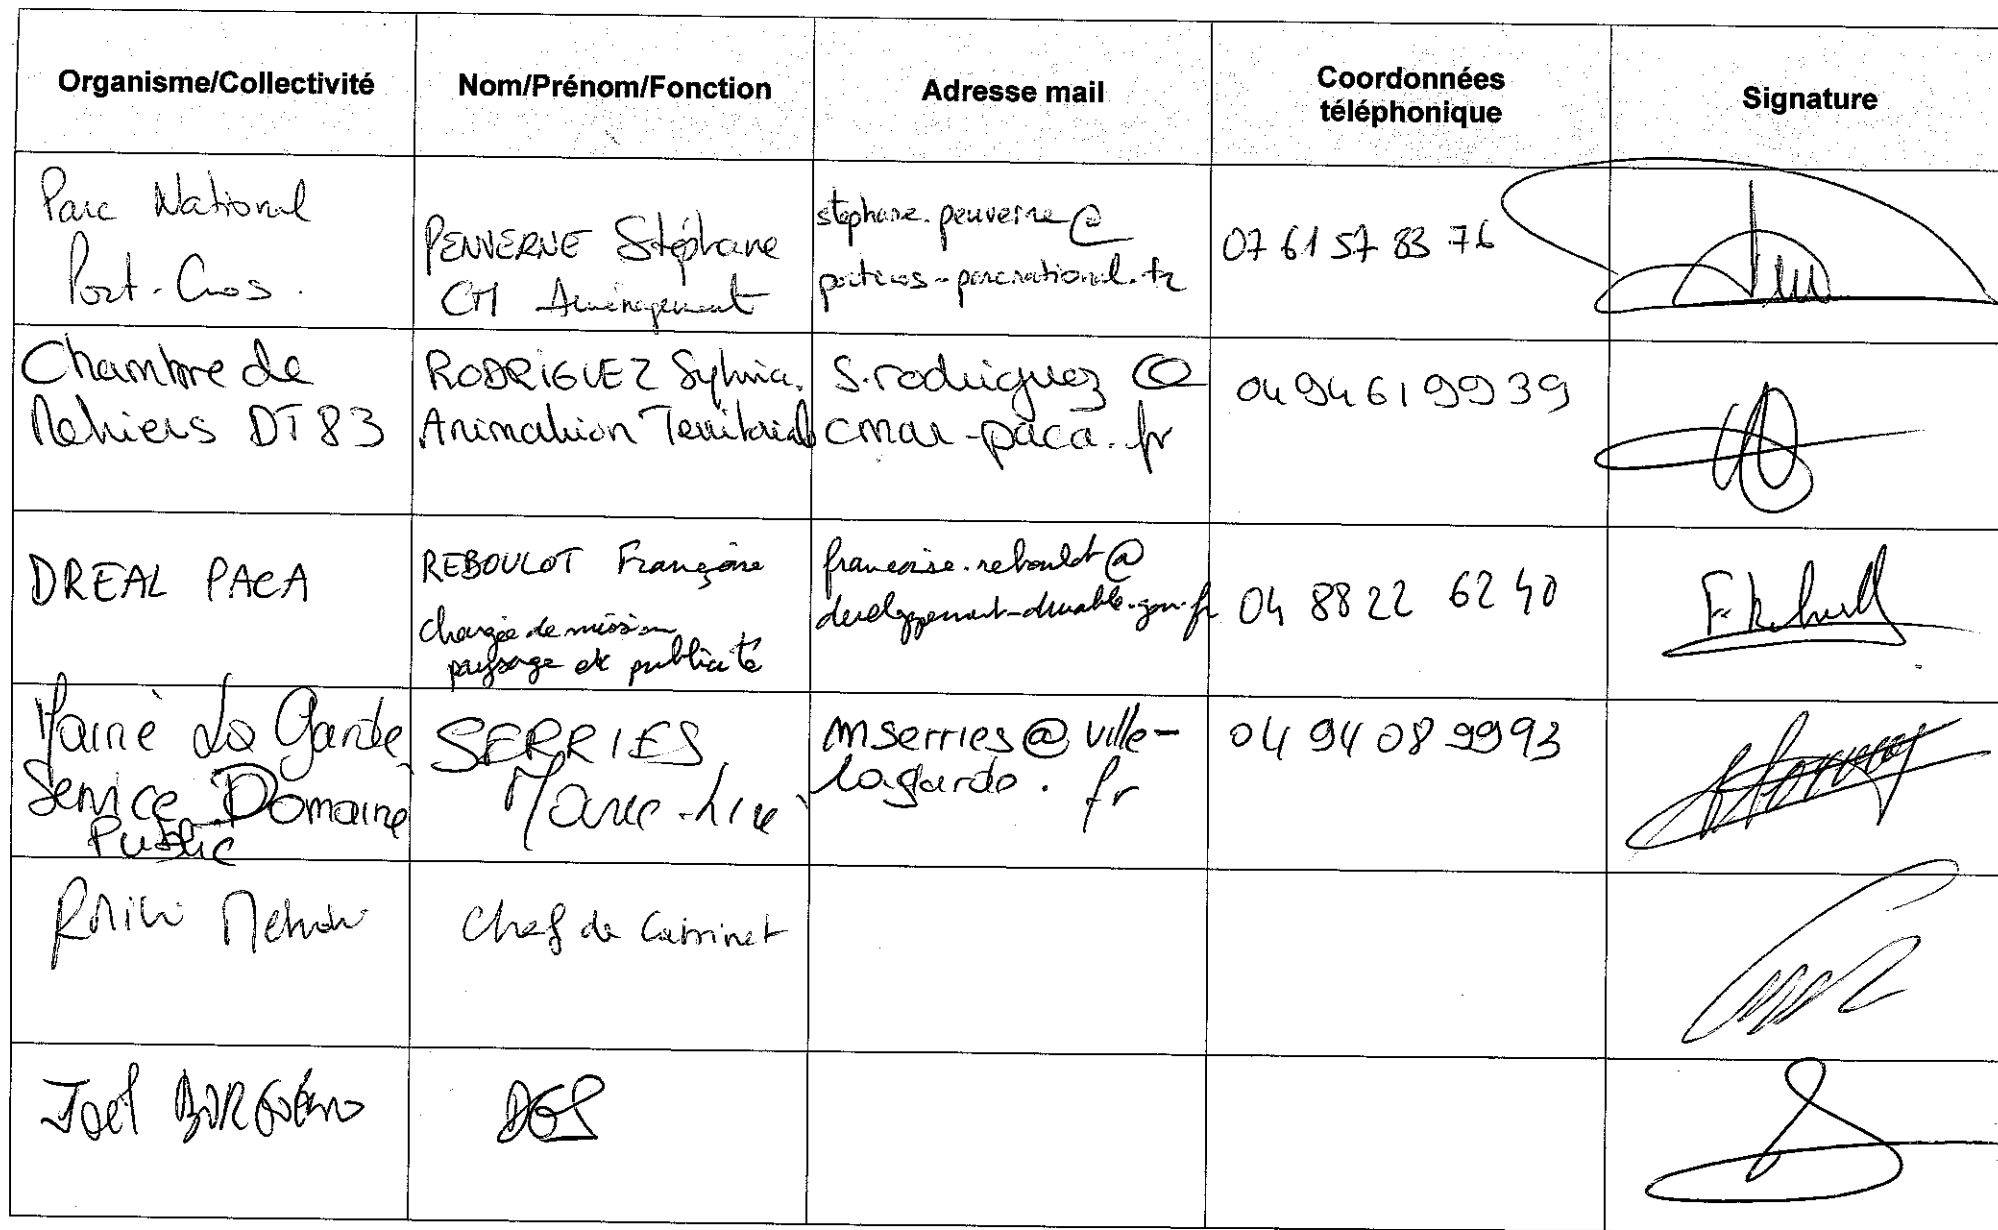 Organisme/Collectivité
Nom/Prénom/Fonction
Adresse mail
Coordonnées
téléphonique
Signature
Parc National
Port-Cros.
PENVERNE Stéphane
CM Aménagement
stephane.penverne@
portcros-parcnational.fr
07 61 57 83 76
Chambre de
Métiers DT 83
RODRIGUEZ Sylvia.
Animation Territorial
s.rodriguez @
cmar-paca.fr
04 94 61 99 39
DREAL PACA
REBOULOT Françoise
chargée de mission
paysage et publicité
francoise.reboulot@
developpement-durable.gouv.fr
04 88 22 62 40
Mairie La Garde
Service Domaine
Public
SERRIES
Marie-Line
mserries@ville-
lagarde.fr
04 94 08 99 93
Chef de Cabinet
Joël
DGS